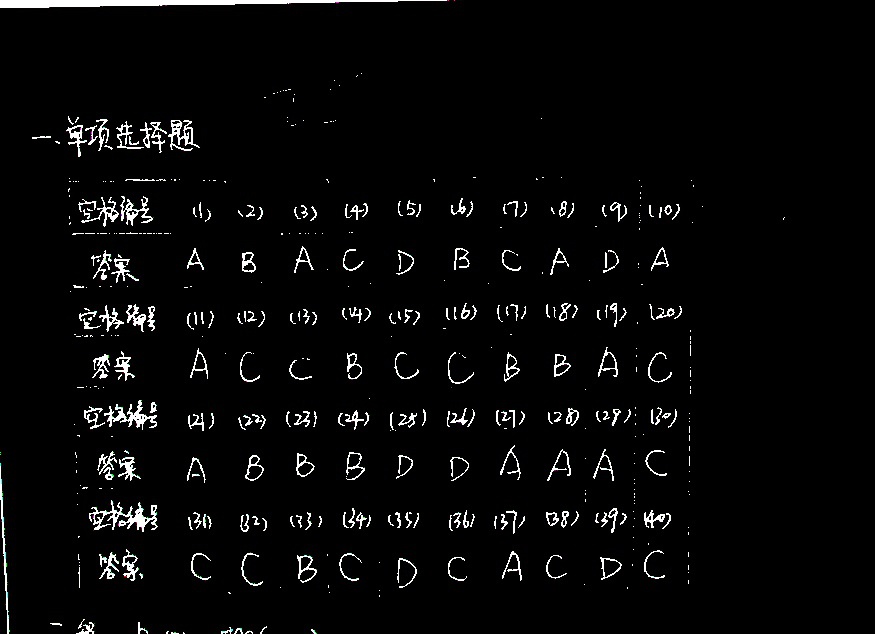 一、单项选择题
空格编号 (1) (2) (3) (4) (5) (6) (7) (8) (9) (10)
答案 A B A C D B C A D A
空格编号 (11) (12) (13) (14) (15) (16) (17) (18) (19) (20)
答案 A C C B C C B B A C
空格编号 (21) (22) (23) (24) (25) (26) (27) (28) (29) (30)
答案 A B B B D D A A A C
空格编号 (31) (32) (33) (34) (35) (36) (37) (38) (39) (40)
答案 C C B C D C A C D C